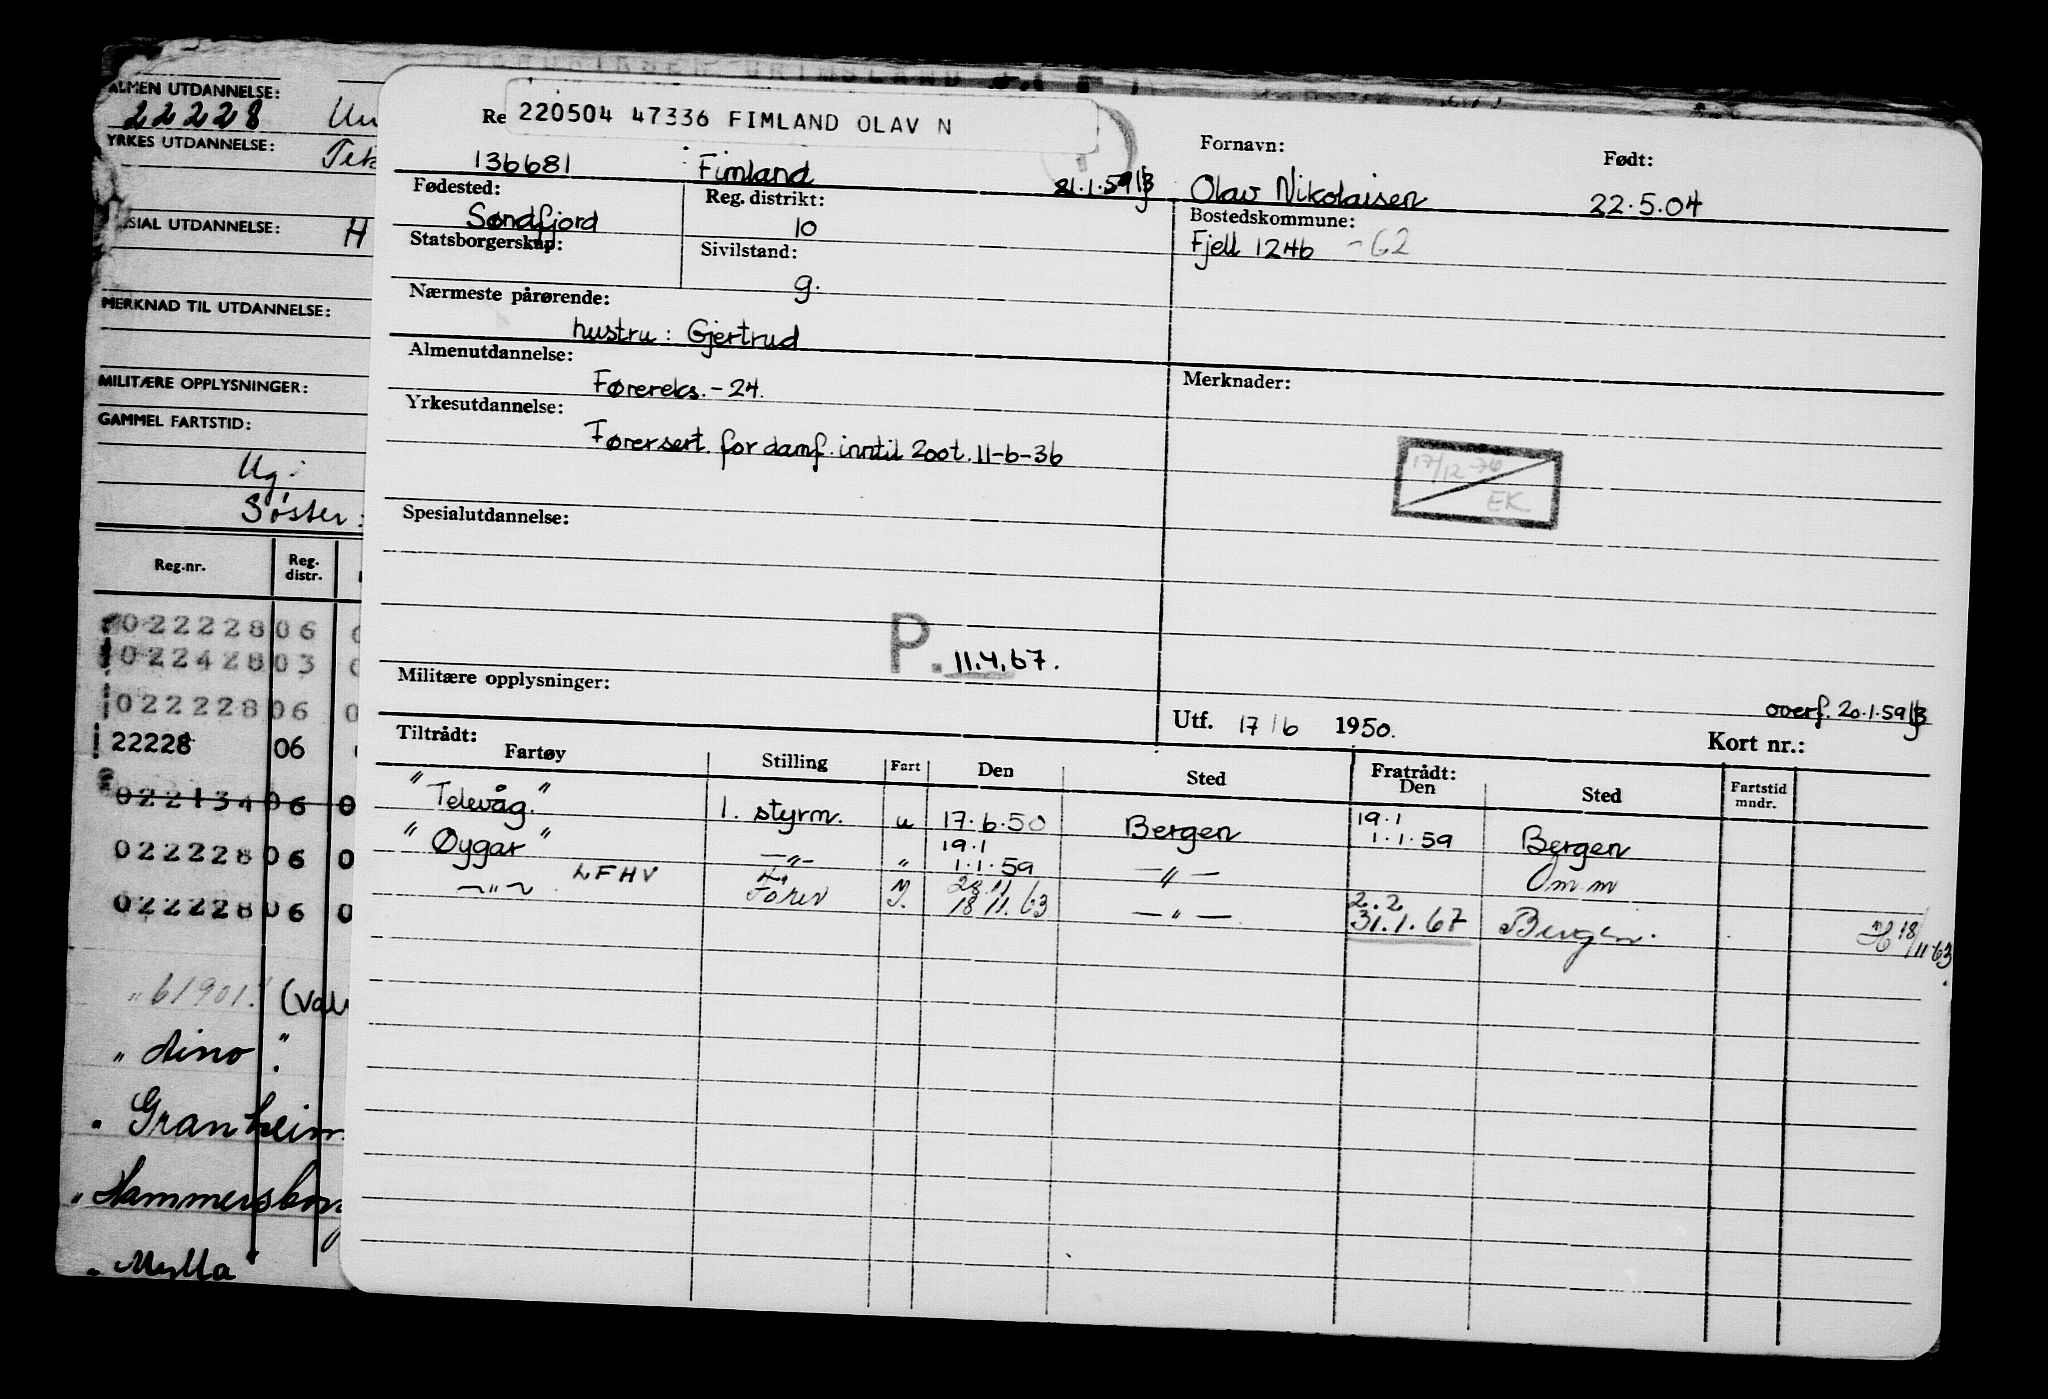 ALMEN UTDANNELSE:
22228
YRKES UTDANNELSE:
UTDANNELSE:
H
MERKNAD TIL UTDANNELSE:
MILITÆRE OPPLYSNINGER:
GAMMEL FARTSTID:
Ug.
Søster:
Reg.nr. Reg. distr.
022228 06 0
022428 03
022228 06 0
22228 06
022134 06 0
022228 06 0
022228 06 0
"61901" (Val
"Aino".
"Granheim
"Hammersborg
"Mylla"
Re 220504 47336 FIMLAND OLAV N
Fornavn: Født:
136681 Fimland 21.1.59 Olav Nikolaisen 22.5.04
Fødested: Reg. distrikt: Bostedskommune:
Søndfjord 10 Fjell 1246 -62
Statsborgerskap: Sivilstand:
g.
Nærmeste pårørende:
hustru: Gjertrud
Almenutdannelse: Merknader:
Førereks. -24.
Yrkesutdannelse:
Førersert. for damf. inntil 200t. 11-6-36
17/12-76
EK
Spesialutdannelse:
P. 11.4.67.
Militære opplysninger:
overf. 20.1.59
Utf. 17/6 1950. Kort nr.:
Tiltrådt: Fratrådt:
Fartøy Stilling Fart Den Sted Den Sted Fartstid mndr.
"Televåg." 1. styrm. u 17.6.50 Bergen 19.1 1.1.59 Bergen
"Øygar" —"— " 19.1 1.1.59 —"— Om.m
—"— LFHV Fører 28.11 18.11.63 —"— 2.2 31.1.67 Bergen. 18/11.63.